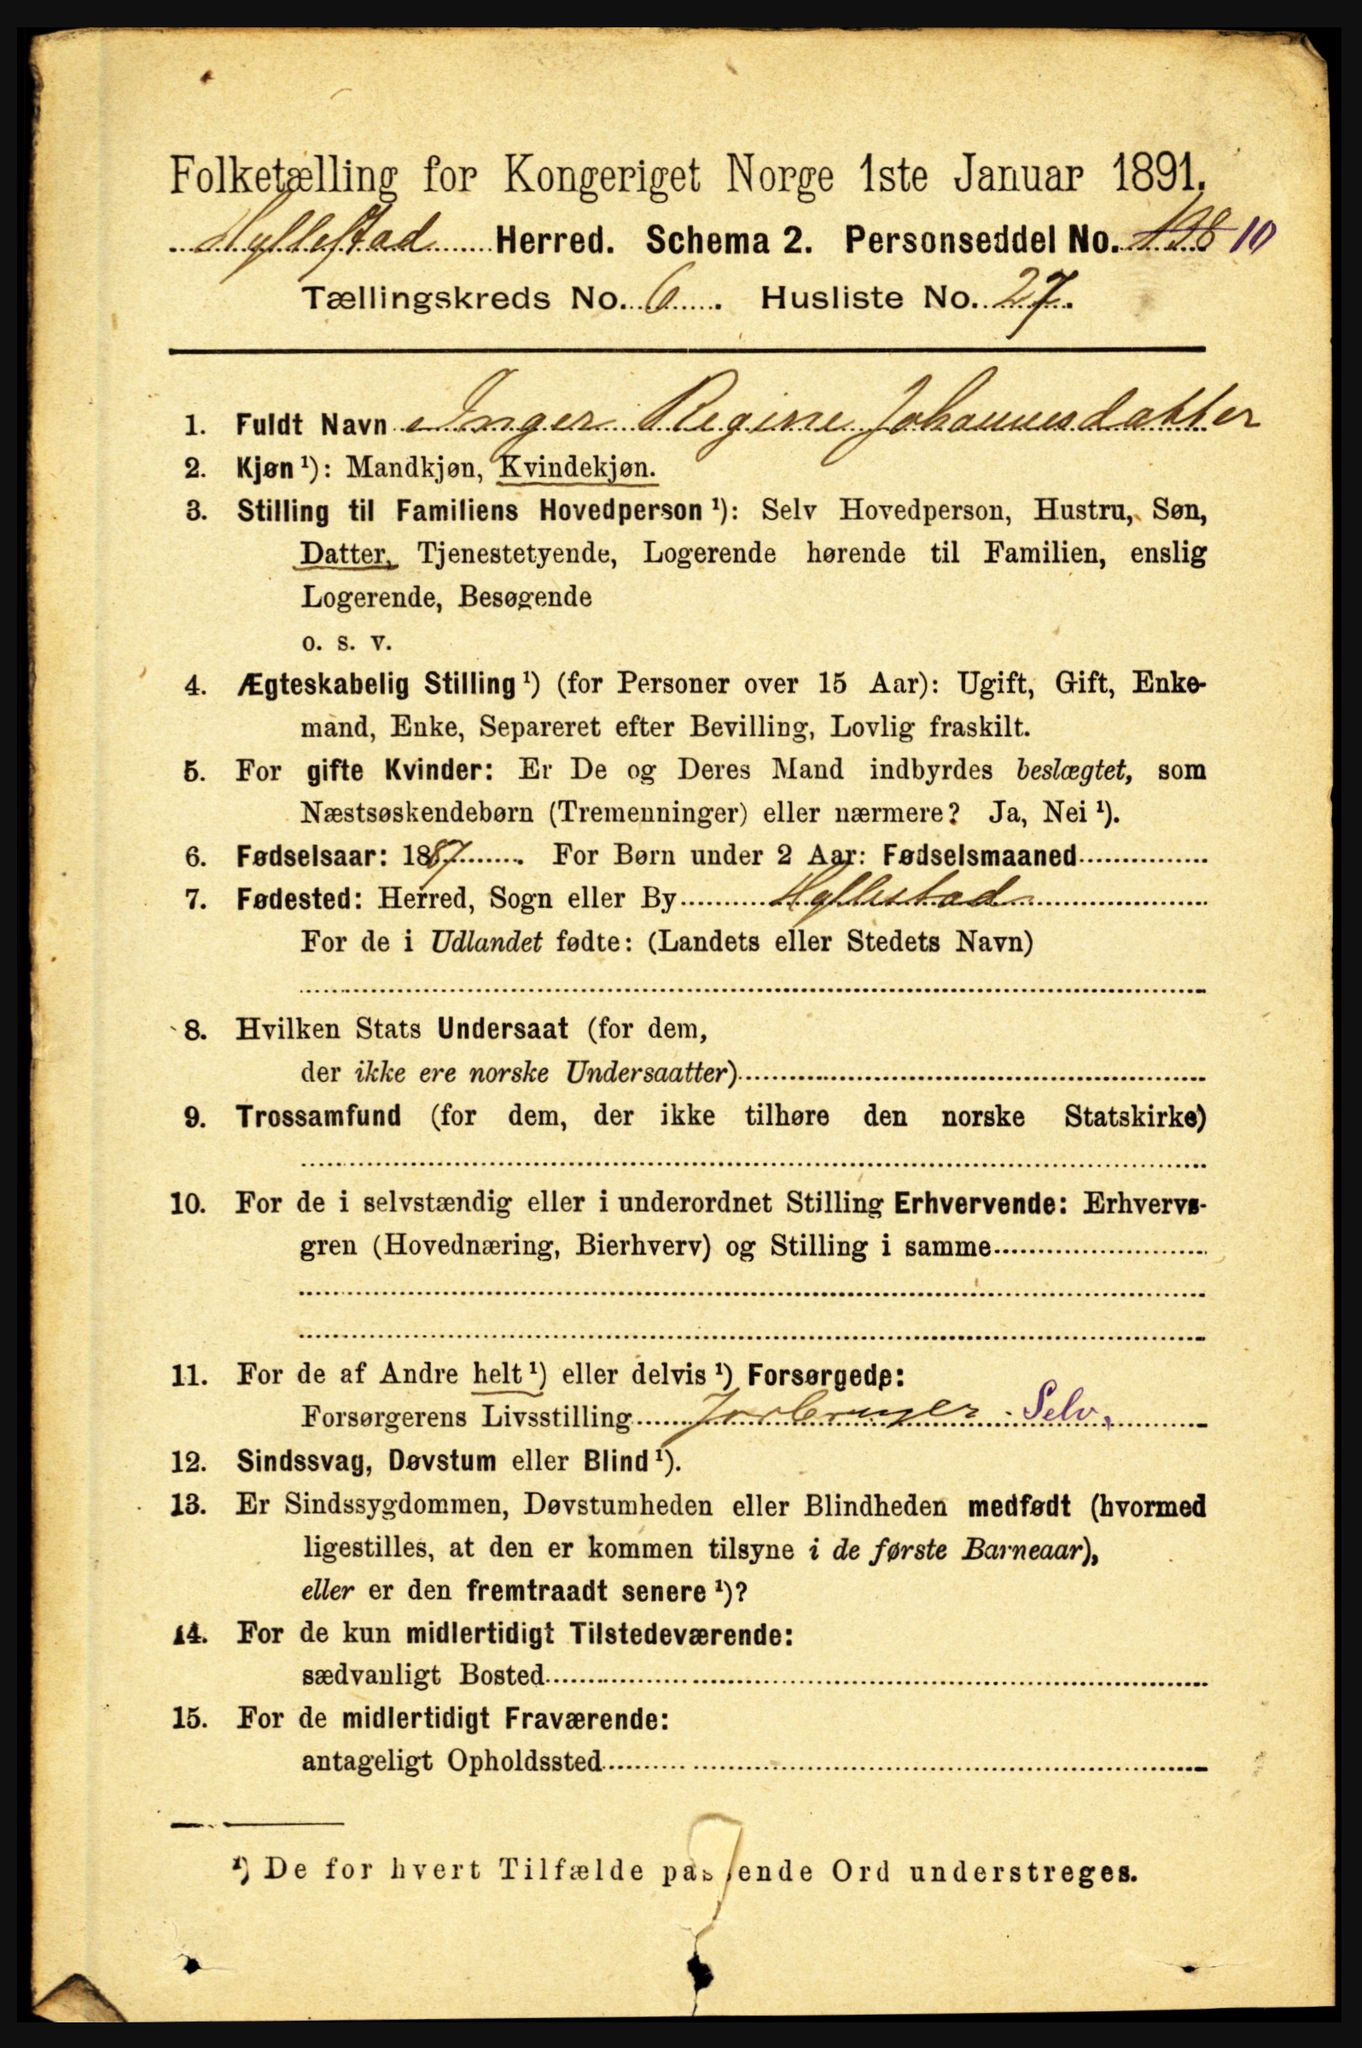 Folketælling for Kongeriget Norge 1ste Januar 1891.
Hyllestad Herred. Schema 2. Personseddel No. 198 10
Tællingskreds No. 6. Husliste No. 27.
1. Fuldt Navn Inger Regine Johannesdatter
2. Kjøn ¹): Mandkjøn, Kvindekjøn.
3. Stilling til Familiens Hovedperson ¹): Selv Hovedperson, Hustru, Søn,
Datter, Tjenestetyende, Logerende hørende til Familien, enslig
Logerende, Besøgende
o. s. v.
4. Ægteskabelig Stilling ¹) (for Personer over 15 Aar): Ugift, Gift, Enke-
mand, Enke, Separeret efter Bevilling, Lovlig fraskilt.
5. For gifte Kvinder: Er De og Deres Mand indbyrdes beslægtet, som
Næstsøskendebørn (Tremenninger) eller nærmere? Ja, Nei ¹).
6. Fødselsaar: 1887. For Børn under 2 Aar: Fødselsmaaned
7. Fødested: Herred, Sogn eller By Hyllestad
For de i Udlandet fødte: (Landets eller Stedets Navn)
8. Hvilken Stats Undersaat (for dem,
der ikke ere norske Undersaatter)
9. Trossamfund (for dem, der ikke tilhøre den norske Statskirke)
10. For de i selvstændig eller i underordnet Stilling Erhvervende: Erhvervs-
gren (Hovednæring, Bierhverv) og Stilling i samme
11. For de af Andre helt ¹) eller delvis ¹) Forsørgede:
Forsørgerens Livsstilling Jordbruger Selv.
12. Sindssvag, Døvstum eller Blind ¹).
13. Er Sindssygdommen, Døvstumheden eller Blindheden medfødt (hvormed
ligestilles, at den er kommen tilsyne i de første Barneaar),
eller er den fremtraadt senere ¹)?
14. For de kun midlertidigt Tilstedeværende:
sædvanligt Bosted
15. For de midlertidigt Fraværende:
antageligt Opholdssted
¹) De for hvert Tilfælde passende Ord understreges.